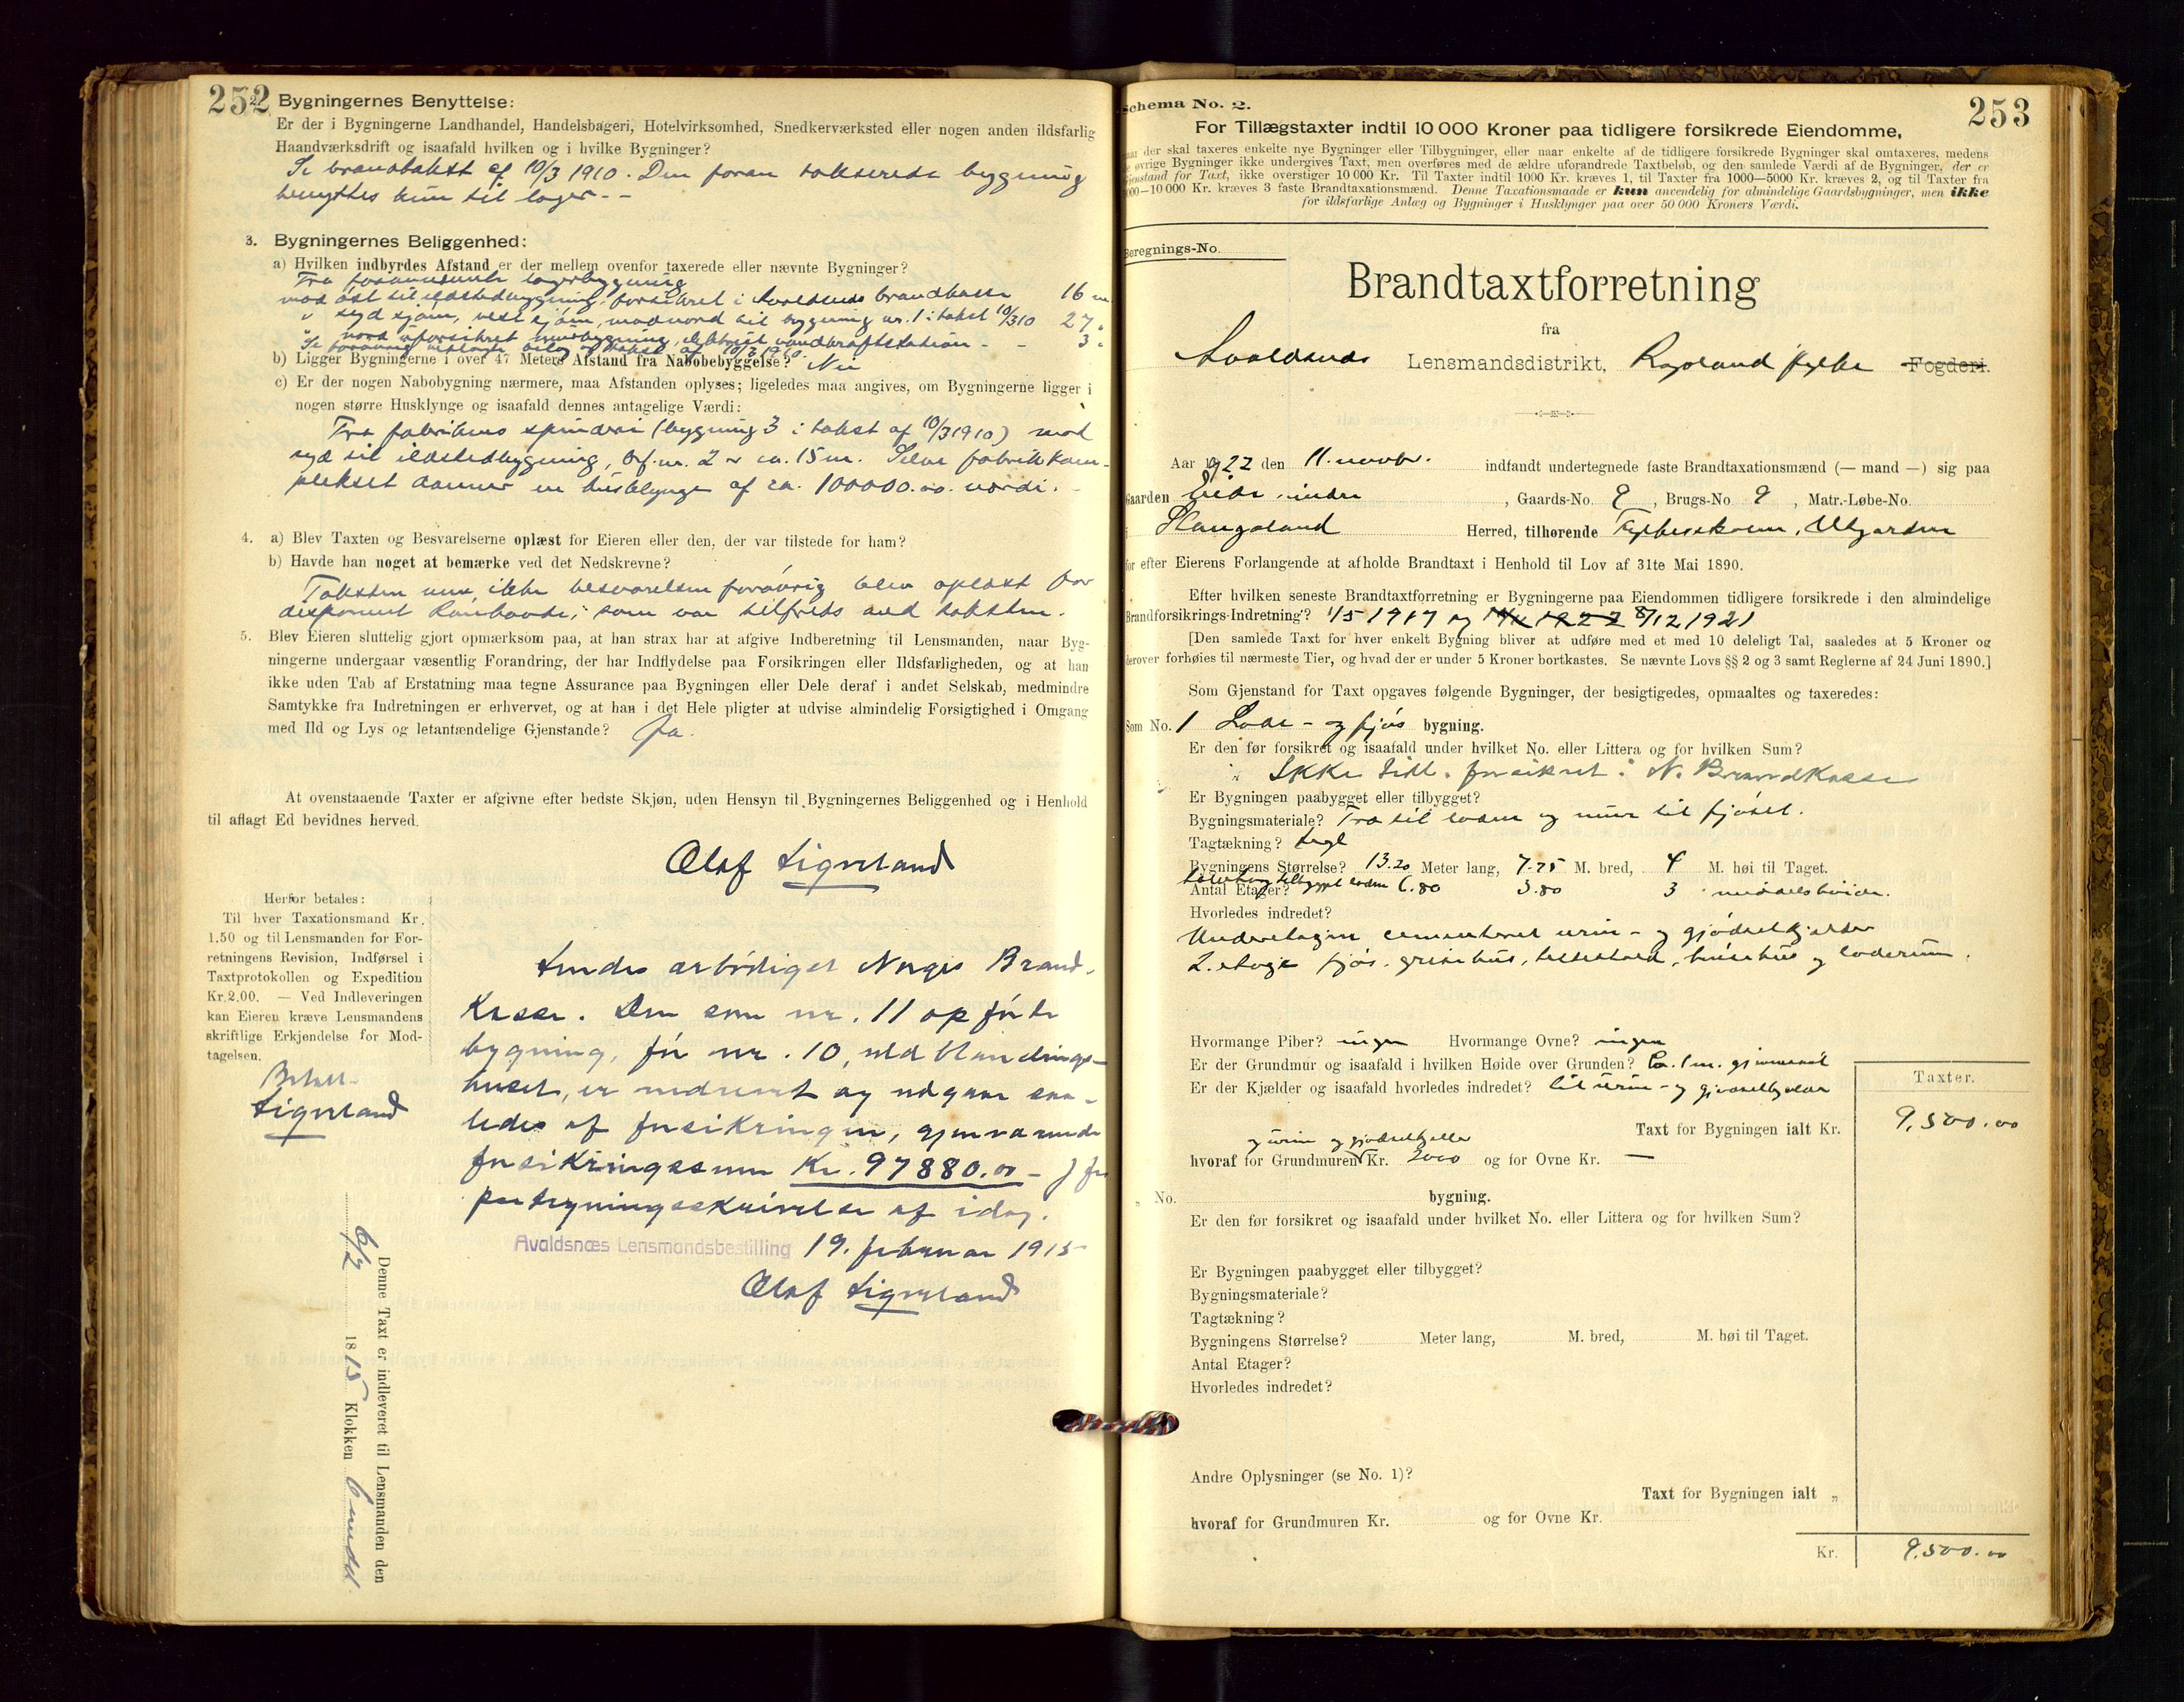 252
Bygningernes Benyttelse:
Er der i Bygningerne Landhandel, Handelsbageri, Hotelvirksomhed, Snedkerværksted eller nogen anden ildsfarlig
Haandværksdrift og isaafald hvilken og i hvilke Bygninger?
Se brandtakst af 10/3 1910. Den foran takserede bygning
benyttes kun til lager.-
3. Bygningernes Beliggenhed:
a) Hvilken indbyrdes Afstand er der mellem ovenfor taxerede eller nævnte Bygninger?
Fra forannævnte lagerbygning
mod øst til ildstedbygning, forsikret i Avaldsnes brandkasse 16 m
" syd sjøen, vest sjøen, mod nord til bygning nr. 1 i takst 10/3 10 27 "
" nord uforsikret murbygning, elektrisk vandkraftstation - - 3 "
b) Ligger Bygningerne i over 47 Meters Afstand fra Nabobebyggelse? Nei
c) Er der nogen Nabobygning nærmere, maa Afstanden oplyses; ligeledes maa angives, om Bygningerne ligger i
nogen større Husklynge og isaafald dennes antagelige Værdi:
Fra fabrikens spinderi (bygning 3 i takst af 10/3 1910) mod
syd til ildstedbygning, Br.nr. 2 er ca. 15 m. Selve fabrikkom-
plekset danner en husklynge af ca. 100000.00 værdi.-
4. a) Blev Taxten og Besvarelserne oplæst for Eieren eller den, der var tilstede for ham?
b) Havde han noget at bemærke ved det Nedskrevne?
Taksten men ikke besvarelsen forøvrig blev oplæst for
disponent, som var tilfreds med taksten.
5. Blev Eieren sluttelig gjort opmærksom paa, at han strax har at afgive Indberetning til Lensmanden, naar Byg-
ningerne undergaar væsentlig Forandring, der har Indflydelse paa Forsikringen eller Ildsfarligheden, og at han
ikke uden Tab af Erstatning maa tegne Assurance paa Bygningen eller Dele deraf i andet Selskab, medmindre
Samtykke fra Indretningen er erhvervet, og at han i det Hele pligter at udvise almindelig Forsigtighed i Omgang
med Ild og Lys og letantændelige Gjenstande? Ja.
At ovenstaaende Taxter er afgivne efter bedste Skjøn, uden Hensyn til Bygningernes Beliggenhed og i Henhold
til aflagt Ed bevidnes herved.
Olaf Sigveland
Herfor betales:
Til hver Taxationsmand Kr.
1.50 og til Lensmanden for For-
retningens Revision, Indførsel i
Taxtprotokollen og Expedition
Kr. 2.00. — Ved Indleveringen
kan Eieren kræve Lensmandens
skriftlige Erkjendelse for Mod-
tagelsen.
Betalt
Sigveland
Sendes ærbødigst Norges Brand-
kasse. Den som nr. 11 opførte
bygning, før nr. 10, uldblandings-
huset, er nedrevet og udgaar saa-
ledes af forsikringen, gjenværende
forsikringssum Kr. 97880.00 - jfr
paategningsskrivelse af idag.
Avaldsnæs Lensmandsbestilling 19. februar 1915
Olaf Sigveland
Denne Taxt er indleveret til Lensmanden den
6/2 1815 Klokken 6 emdd.
Schema No. 2.
253
For Tillægstaxter indtil 10 000 Kroner paa tidligere forsikrede Eiendomme,
naar der skal taxeres enkelte nye Bygninger eller Tilbygninger, eller naar enkelte af de tidligere forsikrede Bygninger skal omtaxeres, medens
de øvrige Bygninger ikke undergives Taxt, men overføres med de ældre uforandrede Taxtbeløb, og den samlede Værdi af de Bygninger, der er
Gjenstand for Taxt, ikke overstiger 10 000 Kr. Til Taxter indtil 1000 Kr. kræves 1, til Taxter fra 1000—5000 Kr. kræves 2, og til Taxter fra
5000—10 000 Kr. kræves 3 faste Brandtaxationsmænd. Denne Taxationsmaade er kun anvendelig for almindelige Gaardsbygninger, men ikke
for ildsfarlige Anlæg og Bygninger i Husklynger paa over 50 000 Kroners Værdi.
Beregnings-No.
Brandtaxtforretning
fra
Avaldsnes Lensmandsdistrikt, Rogaland fylke Fogderi.
Aar 1922 den 11. novbr. indfandt undertegnede faste Brandtaxationsmænd (— mand —) sig paa
Gaarden Eide, indre, Gaards-No. 9, Brugs-No 9, Matr.-Løbe-No.
i Skaugaland Herred, tilhørende
for efter Eierens Forlangende at afholde Brandtaxt i Henhold til Lov af 31te Mai 1890.
Efter hvilken seneste Brandtaxtforretning er Bygningerne paa Eiendommen tidligere forsikrede i den almindelige
Brandforsikrings-Indretning? 1/5 1917 og 8/12 1921
[Den samlede Taxt for hver enkelt Bygning bliver at udføre med et med 10 deleligt Tal, saaledes at 5 Kroner og
derover forhøies til nærmeste Tier, og hvad der er under 5 Kroner bortkastes. Se nævnte Lovs §§ 2 og 3 samt Reglerne af 24 Juni 1890.]
Som Gjenstand for Taxt opgaves følgende Bygninger, der besigtigedes, opmaaltes og taxeredes:
Som No. 1 Lade- og fjøs bygning.
Er den før forsikret og isaafald under hvilket No. eller Littera og for hvilken Sum?
Ikke tidl. forsikret i N. Brandkasse
Er Bygningen paabygget eller tilbygget?
Bygningsmateriale? Træ til laden og mur til fjøset.
Tagtækning? tegl
Bygningens Størrelse? 13.20 Meter lang, 7.75 M. bred, 4 M. høi til Taget.
Antal Etager? tilbygget laden 6.80 3.80 3 middelshøide.
Hvorledes indredet?
Underetagen cementeret urin- og gjødselkjelder
2. etage fjøs, grisehus, hestestald, hønsehus og laderum.
Hvormange Piber? ingen Hvormange Ovne? ingen
Er der Grundmur og isaafald i hvilken Høide over Grunden? Ca. 1 m. gjennemsn.
Er der Kjælder og isaafald hvorledes indredet? til urin- og gjødselkjelder
Taxter.
Taxt for Bygningen ialt Kr. 9,500.00
og urin og gjødselkjeller
hvoraf for Grundmuren Kr. 3000 og for Ovne Kr. —
„ No. bygning.
Er den før forsikret og isaafald under hvilket No. eller Littera og for hvilken Sum?
Er Bygningen paabygget eller tilbygget?
Bygningsmateriale?
Tagtækning?
Bygningens Størrelse? Meter lang, M. bred, M. høi til Taget.
Antal Etager?
Hvorledes indredet?
Andre Oplysninger (se No. 1)?
Taxt for Bygningen ialt „
hvoraf for Grundmuren Kr. og for Ovne Kr.
Kr. 9.500.00